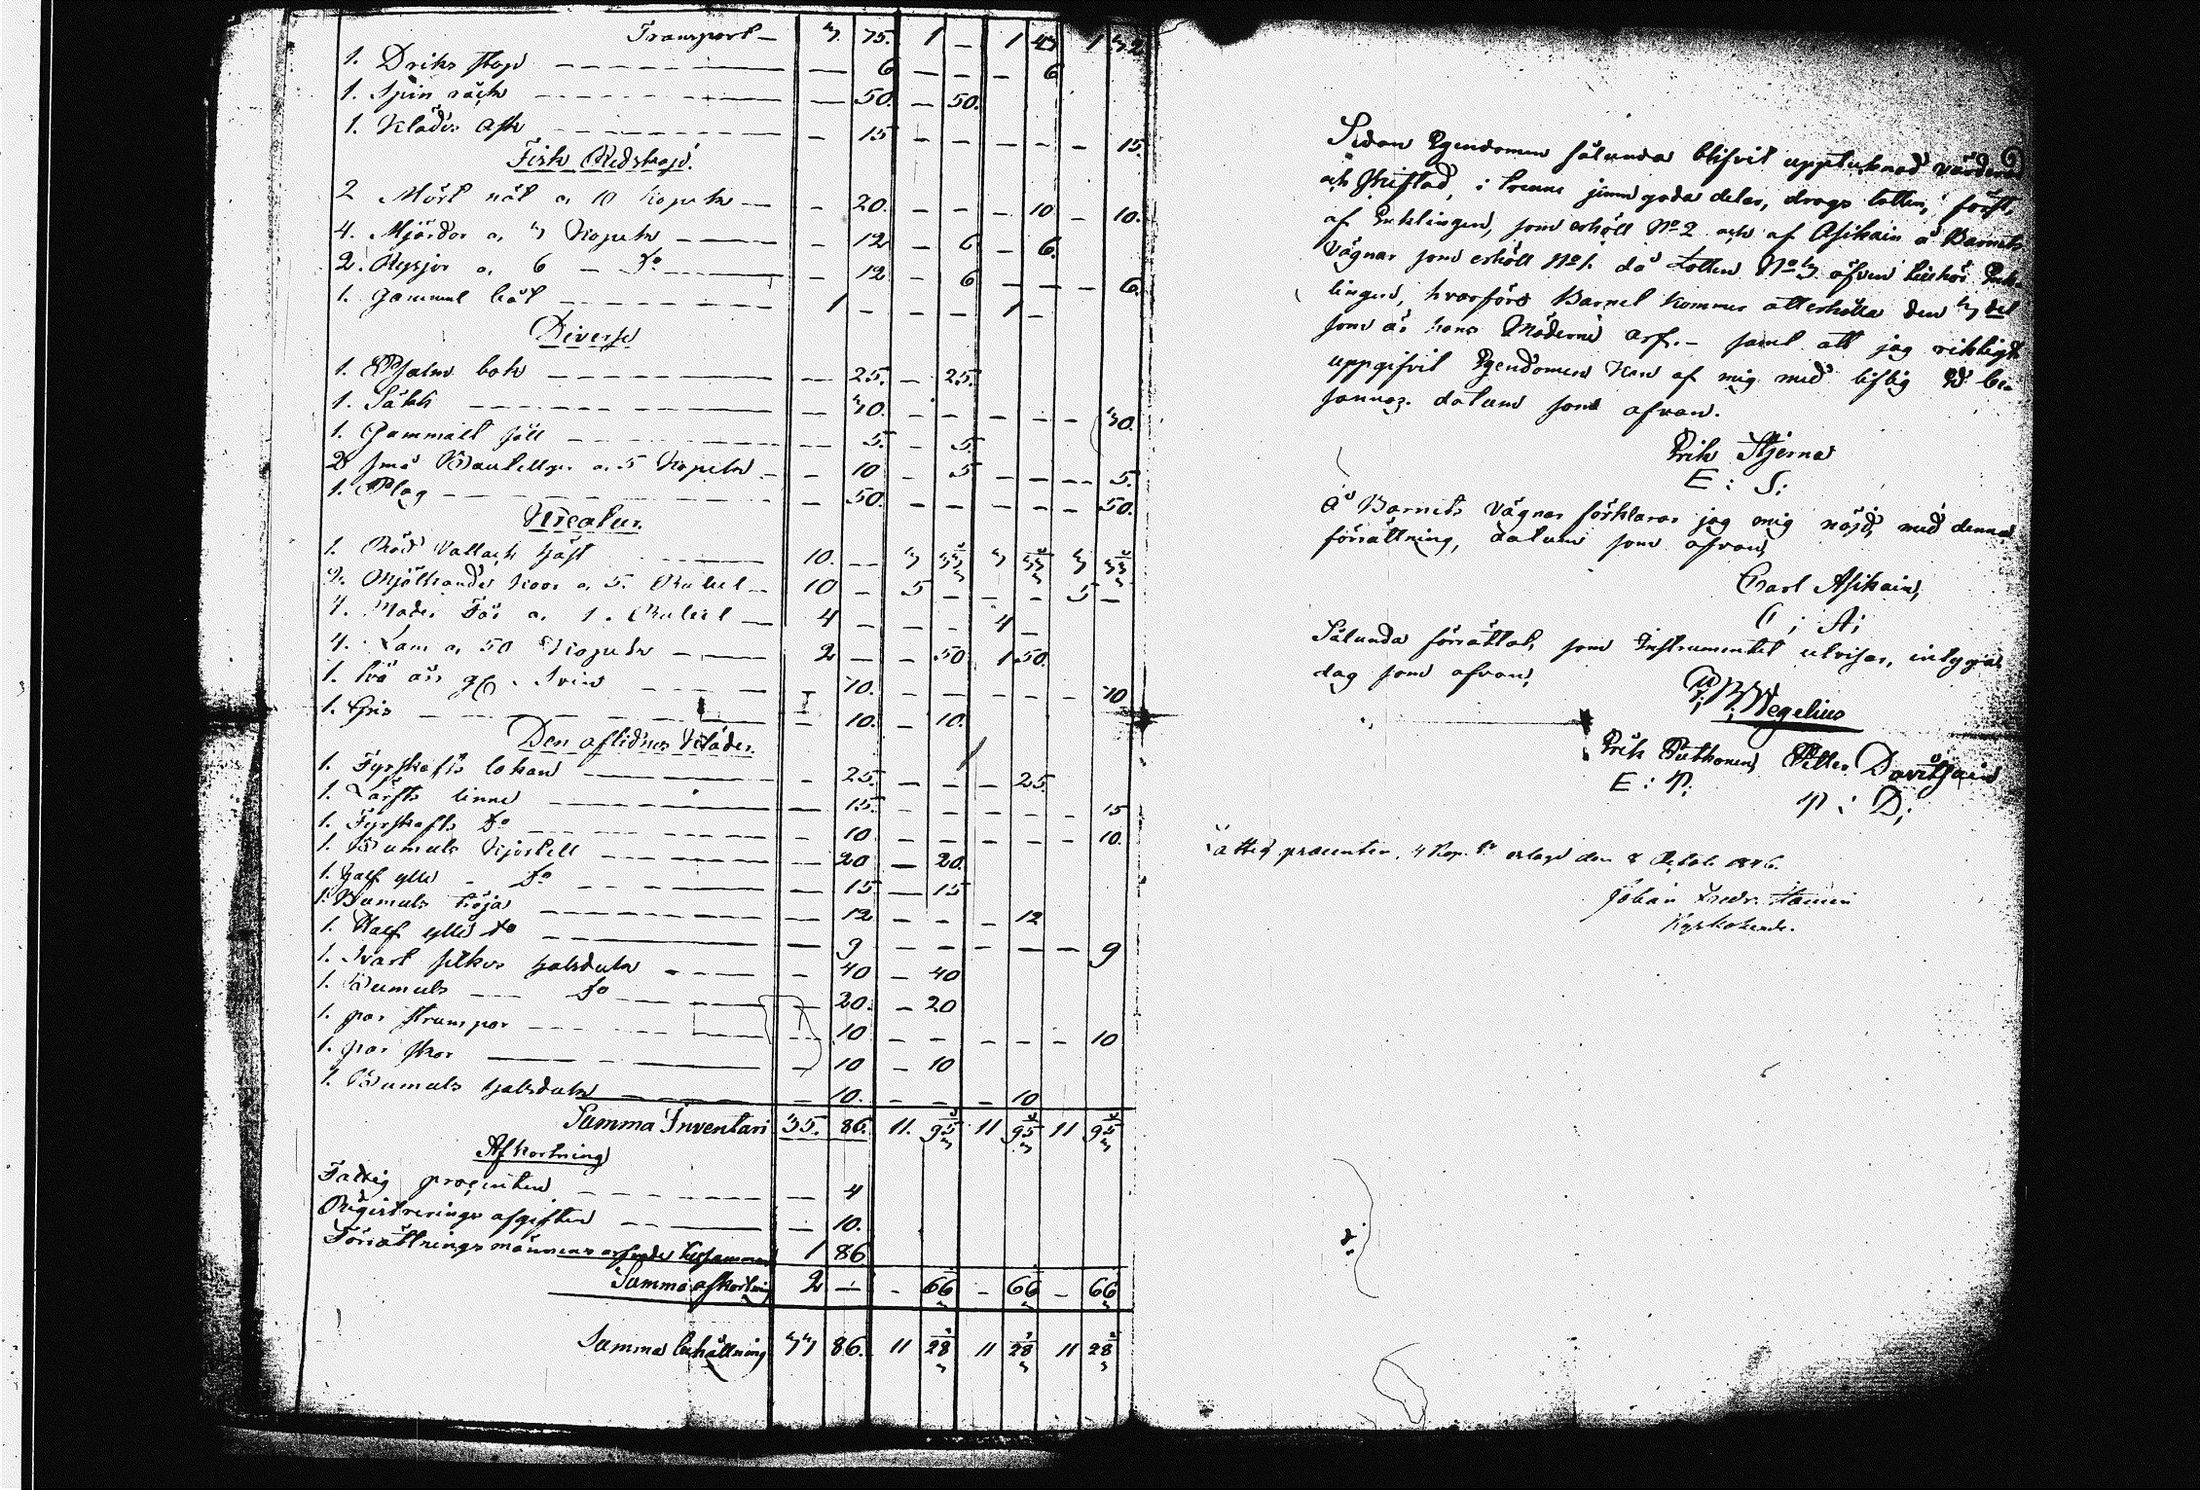 Transport — 3. 75. 1 — 1 43 1 32
1. Driks stop — 6 — — — 6
1. Spin räck — 50. — 50.
1. Kläder Ask — 15 — — — — — 15.
Fisk Redskap.
2 Mört nät a 10 Kopek — 20. — — — 10 — 10.
4. Mjärdor a 3 Kopek — 12 — 6 — 6.
2. Rysjor a 6 — Do — 12 — 6 — — — 6.
1. Gammal båt 1 — — — 1 —
Diverse
1. Psalm bok — 25. — 25.
1. Säck — 30. — — — — — 30.
1. Gammalt — 5. — 5.
2 små Boutellger a 5 Kopek — 10 — 5 — — — 5.
1. Plog — 50. — — — — — 50.
Kreatur.
1. Röd Vallack Häst 10. — 3 33 3 33 3 33
2. Mjölkande Koor a 5. Rubel 10 — 5 — — — 5 —
4. Moder Får a 1. Rubel 4 — — — 4 —
4. Lam a 50 Kopek 2 — — 50 1 50.
1. två års Svin — 70. — — — — — 70
1. Gris — 10. — 10.
Den aflidnes Kläder.
1. Fyrskafts lakan — 25. — — — 25.
1. Lärfts linne — 15. — — — — — 15
1. Fyrskafts Do — 10 — — — — — 10.
1. Bomuls Kjortell — 20 — 20.
1. Half ylle Do — 15 — 15
1. Bomuls tröja — 12 — — — 12
1. Half ylle Do — 9 — — — — — 9
1. Svart silkes halsduk — 40 — 40
1. Bomuls Do — 20. — 20
1. par strumpor — 10 — — — — — 10
1. par skor — 10 — 10
1. Bomuls halsduk — 10. — — — 10
Summa Inventari 35. 86. 11. 95 11 95 11 95
Afkortning
Fattig procenten — 4
Registrerings afgiften — 10.
Förrättningsmännens arfvode tillsamman 1 86
Summa afkortning 2 — — 66 — 66 — 66
Summa behållning 33 86. 11 28 11 28 11 28
Sedan Egendomen sålunda blifvit upptecknad värderad
och skiftad, i trenne jemngoda delar, drogs lotten, först,
af Enklingen, som erhöll No 2 och af Asikain å Barnets
Vägnar som erhöll No 1. då Lotten No 3 äfven tillhör Enk-
lingen, hvarföre Barnet kommer att erhålla den 3 del
som är hans Möderne arf. — samt att jag riktigt
uppgifvit Egendomen kan af mig med liflig Ed be-
sannas. datum som ofvan.
Erik Stjerna
E : S:
Å Barnets Vägnar förklarar jag mig nöjd med denna
förrättning, datum som ofvan,
Carl Asikain,
C ; A;
Sålunda förrättat, som Instrumentet utvisar, intygar
dag som ofvan,
Wegelius
Erik Petter Davitsain
E : P; P : D;
Fattig procenten, 4 Kop. Sr erlagd den 8 1846.
Johan Fredr.